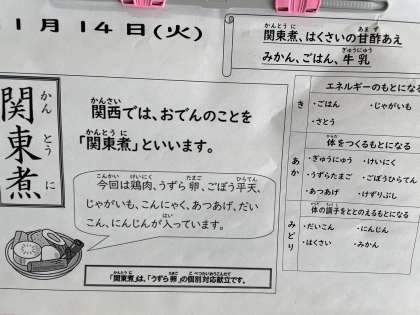 1月14日(火)
関東煮、はくさいの甘酢あえ
みかん、ごはん、牛乳
関東煮
かんとうに
関西では、おでんのことを
「関東煮」といいます。
今回は鶏肉、うずら卵、ごぼう平天、
じゃがいも、こんにゃく、あつあげ、だい
こん、にんじんが入っています。
「関東煮」は、「うずら卵」の個別対応献立です。
エネルギーのもとになる
き
・ごはん ・じゃがいも
・さとう
体をつくるもとになる
あか
・ぎゅうにゅう ・けいにく
・うずらたまご ・ごぼうひらてん
・あつあげ ・けずりぶし
体の調子をととのえるもとになる
みどり
・だいこん ・にんじん
・はくさい ・みかん